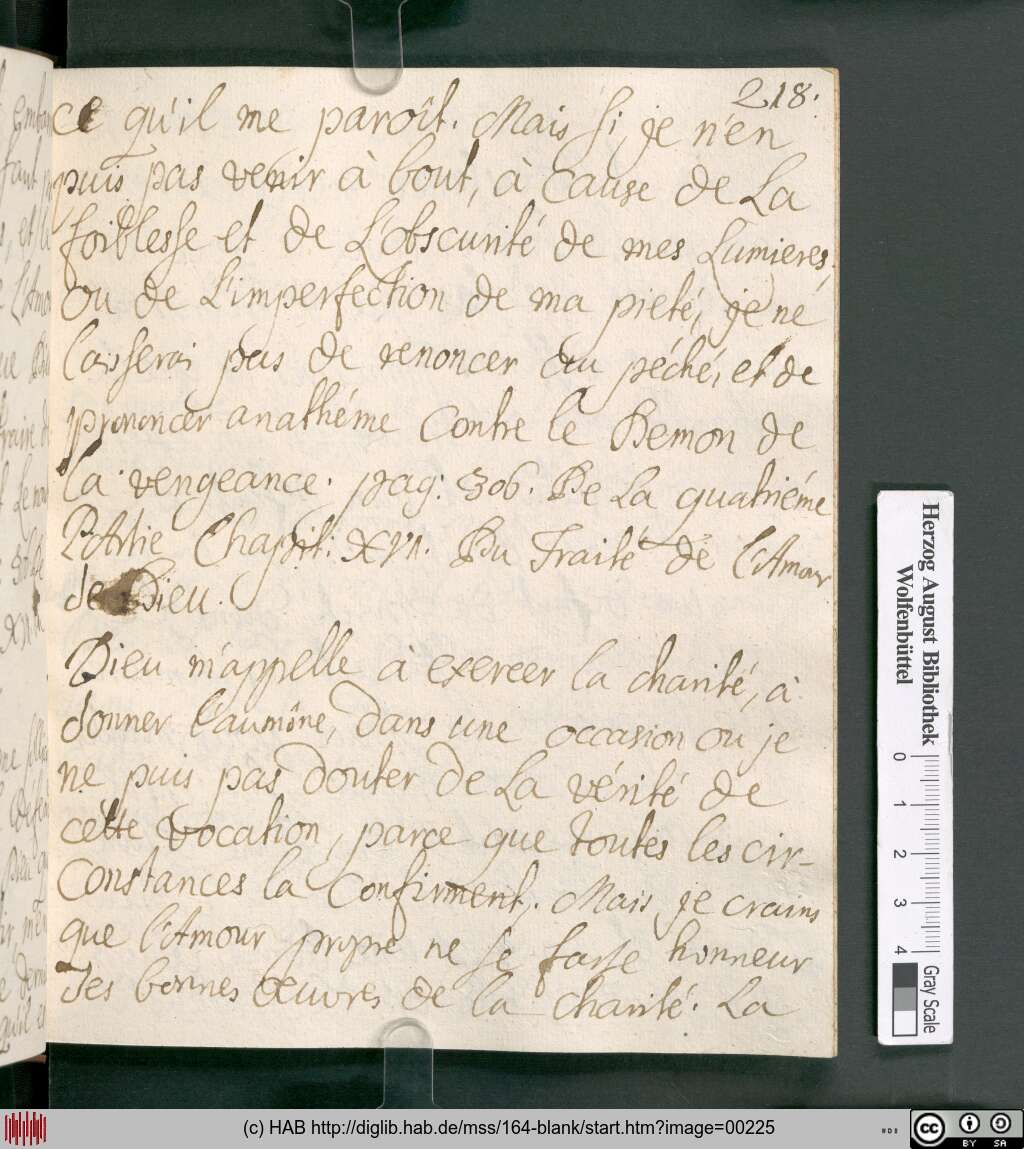 218.
ce qu'il me paroît. Mais si je n'en
puis pas venir à bout, à cause de La
foiblesse et de L'obscurité de mes Lumieres
ou de L'imperfection de ma pieté, je né
laisserai pas de renoncer au péché, et de
prononcer anathéme Contre le Demon de
la vengeance. pag: 306. De La quatriéme
Partie Chapit: XVI. Du Traité de l'Amour
de Dieu.
Dieu m'appelle à exercer la charité, à
donner l'aumône, dans une occasion ou je
ne puis pas douter de La vérité de
cette vocation, parce que toutes les cir-
Constances la Confirment. Mais je crains
que l'Amour propre ne se fasse honneur
des bonnes œuvres de la charité. La
Herzog August Bibliothek
Wolfenbüttel
0 1 2 3 4
Gray Scale
(c) HAB http://diglib.hab.de/mss/164-blank/start.htm?image=00225
cc BY SA